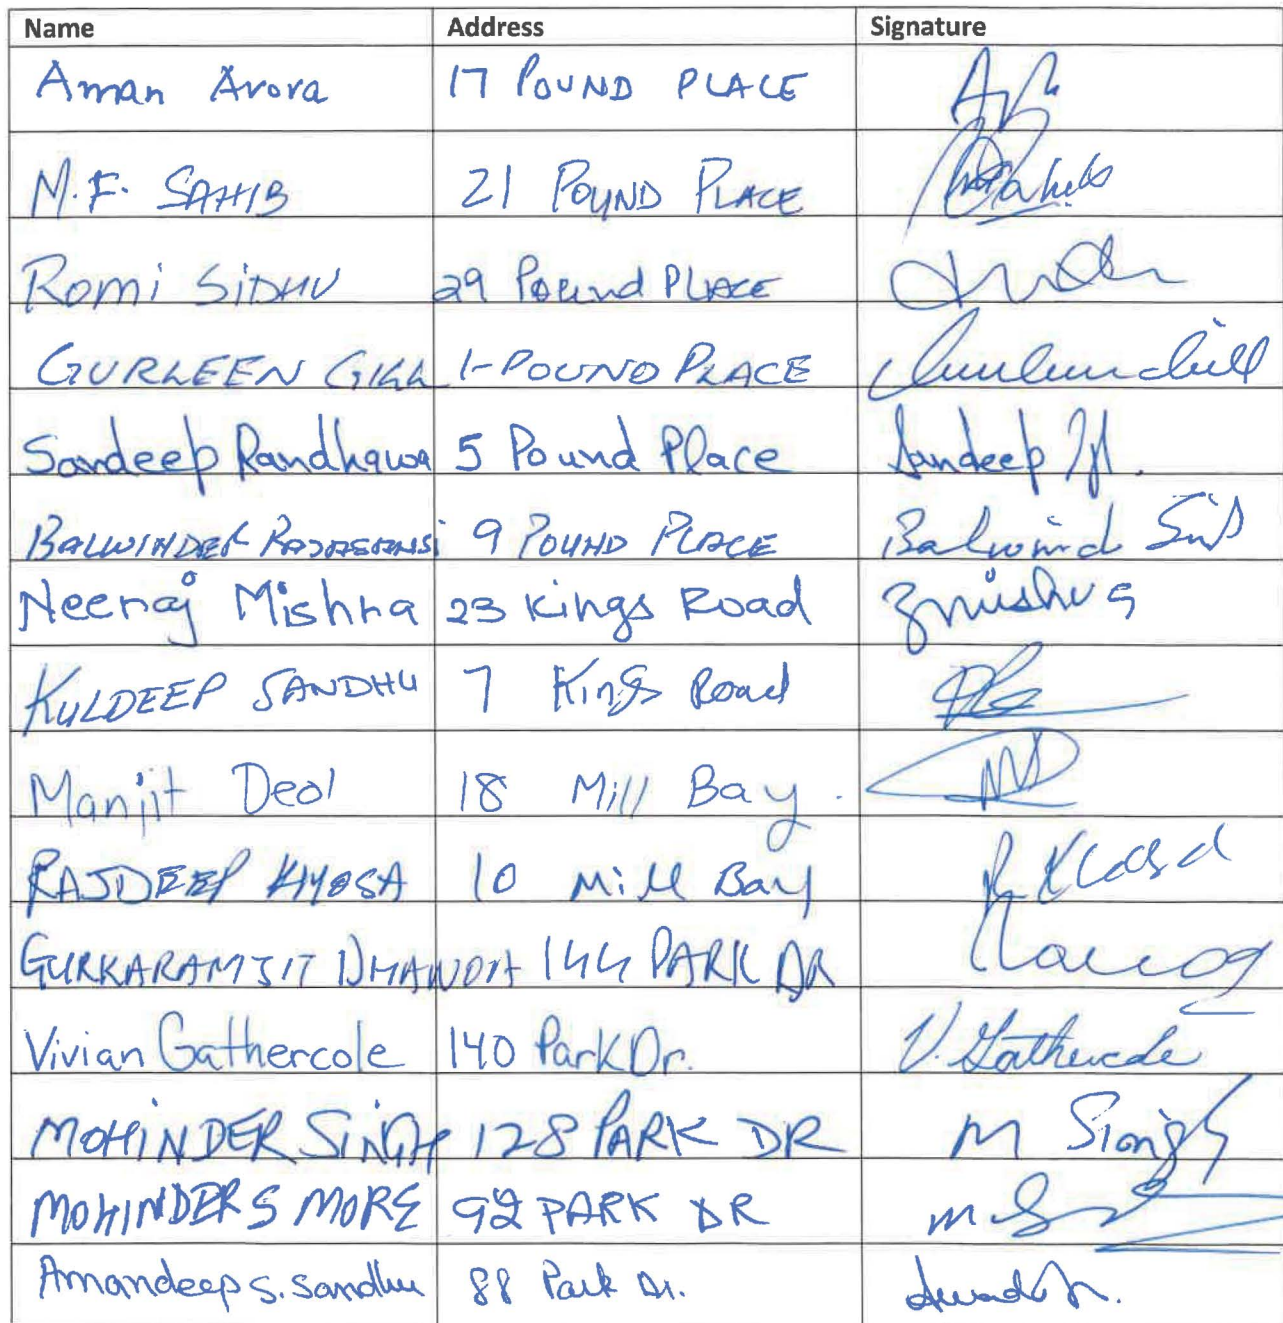 Name Address Signature
Aman Arora 17 POUND PLACE
M.F. SAHIB 21 POUND PLACE
Romi SiDHU 29 Pound PLACE
GURLEEN GILL 1-POUND PLACE
Sandeep Randhawa 5 Pound Place Sandeep
BALWINDER 9 POUND PLACE Balwind
Neeraj Mishra 23 Kings Road
KULDEEP SANDHU 7 Kings Road
Manjit Deol 18 Mill Bay.
RAJDEEP KHOSA 10 Mill Bay
GURKARAMJIT 144 PARK DR
Vivian Gathercole 140 Park Dr. V. Gathercole
MOHINDER SiNGH 128 PARK DR M Singh
MOHINDER S MORE 92 PARK DR
Amandeep S. Sandhu 88 Park Dr.